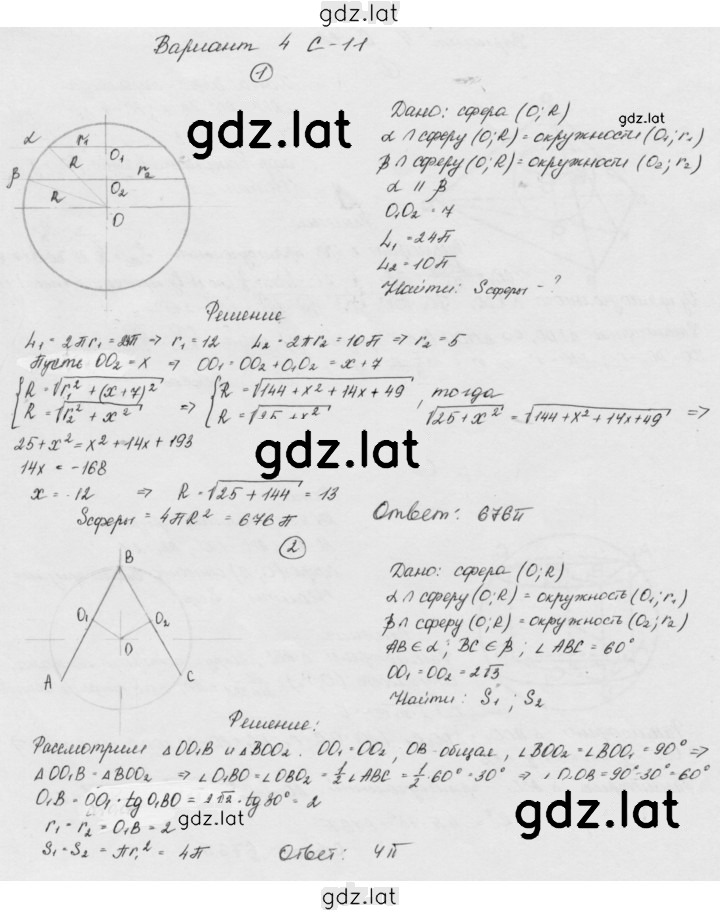 gdz.lat
Вариант 4 С-11
1
gdz.lat
α r₁ O₁
R
β O₂ r₂
R
O
Дано: сфера (O; R) gdz.lat
α ∩ сферу (O; R) = окружности (O₁; r₁)
β ∩ сферу (O; R) = окружности (O₂; r₂)
α ∥ β
O₁O₂ = 7
L₁ = 24π
L₂ = 10π
Найти: Sсферы - ?
Решение
L₁ = 2πr₁ = 24π ⇒ r₁ = 12 L₂ = 2πr₂ = 10π ⇒ r₂ = 5
Пусть OO₂ = x ⇒ OO₁ = OO₂ + O₁O₂ = x + 7
{R = √(r₁² + (x+7)²) {R = √(144 + x² + 14x + 49)
{R = √(r₂² + x²) ⇒ {R = √(25 + x²) , тогда √(25 + x²) = √(144 + x² + 14x + 49) ⇒
25 + x² = x² + 14x + 193
14x = -168
gdz.lat
x = -12 ⇒ R = √(25 + 144) = 13
Sсферы = 4πR² = 676π Ответ: 676π
2
B
O₁ O₂
O
A C
Дано: сфера (O; R)
α ∩ сферу (O; R) = окружность (O₁; r₁)
β ∩ сферу (O; R) = окружность (O₂; r₂)
AB ∈ α; BC ∈ β; ∠ABC = 60°
OO₁ = OO₂ = 2√3
Найти: S₁; S₂
Решение:
Рассмотрим △OO₁B и △BOO₂. OO₁ = OO₂, OB - общая, ∠BOO₂ = ∠BOO₁ = 90° ⇒
△OO₁B = △BOO₂ ⇒ ∠O₁BO = ∠OBO₂ = ½∠ABC = ½·60° = 30° ⇒ ∠O₁OB = 90° - 30° = 60°
O₁B = OO₁ · tg O₁BO = 2√2 · tg 30° = 2
r₁ = r₂ = O₁B = 2 gdz.lat gdz.lat
S₁ = S₂ = πr₁² = 4π Ответ: 4π
gdz.lat